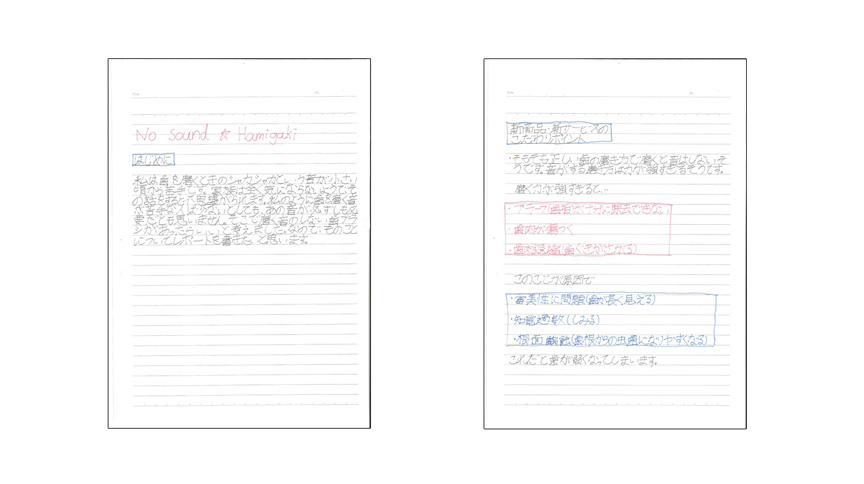 No Sound ☆ Hamigaki
はじめに
私は歯を磨くときのシャカシャカという音が小さい
頃から苦手です。家族は全く気にならないようでそ
の話をあまり
私のように歯を磨く音
が苦手な人は少ないとしても、あの音が必ずしも必
要だとも思いません。そこで磨く音のしない歯ブラ
シがあったらいいなと考えました。なので、そのこと
についてレポートを書きたいと思います。
新商品・新サービスの
こだわりポイント
・そもそも正しい歯の磨き方で磨くと音はしないそ
うです。音がする磨き方は力が強すぎるそうです。
磨く力が強すぎると…
・プラーク(歯垢)が十分に除去できない
・歯肉が傷つく
・歯肉退縮(歯ぐきがさがる)
このことが原因で
・審美性に問題(歯が長く見える)
・知覚過敏(しみる)
・根面齲蝕(歯根からの虫歯になりやすくなる)
これだと歯が弱くなってしまいます。